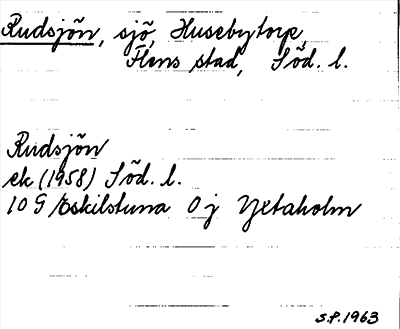 Rudsjön, sjö, Husebytorp,
Flens stad, Söd. l.
Rudsjön
ek (1958) Söd. l.
10 G Eskilstuna 0 j Yxtaholm
S.P. 1963